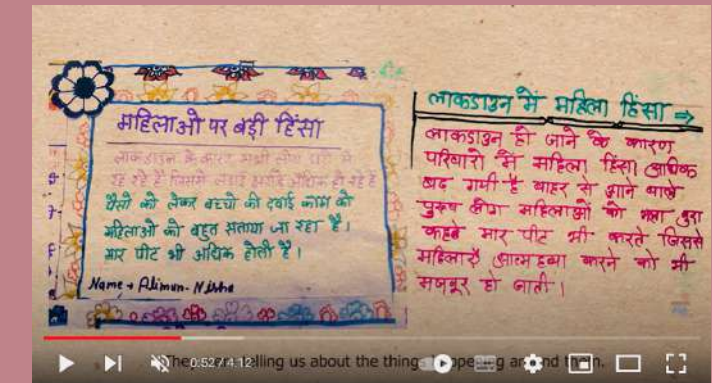 महिलाओ पर बड़ी हिंसा
लाकडाउन के कारण सभी लोग घरो मे
रह रहे है जिससे लड़ाई झगड़े अधिक हो रहे है
पैसो को लेकर बच्चो की दवाई काम को
महिलाओ को बहुत सताया जा रहा है।
मार पीट भी अधिक होती है।
Name → Alimun-Nisha
लाकडाउन में महिला हिंसा ⇒
लाकडाउन हो जाने के कारण
परिवारो में महिला हिंसा अधिक
बढ़ गयी है बाहर से आने वाले
पुरुष लोग महिलाओं को भला बुरा
कहते मार पीट भी करते जिससे
महिलाऐं आत्म हत्या करने को भी
मजबूर हो जाती।
0:52 / 4:12
telling us about the things